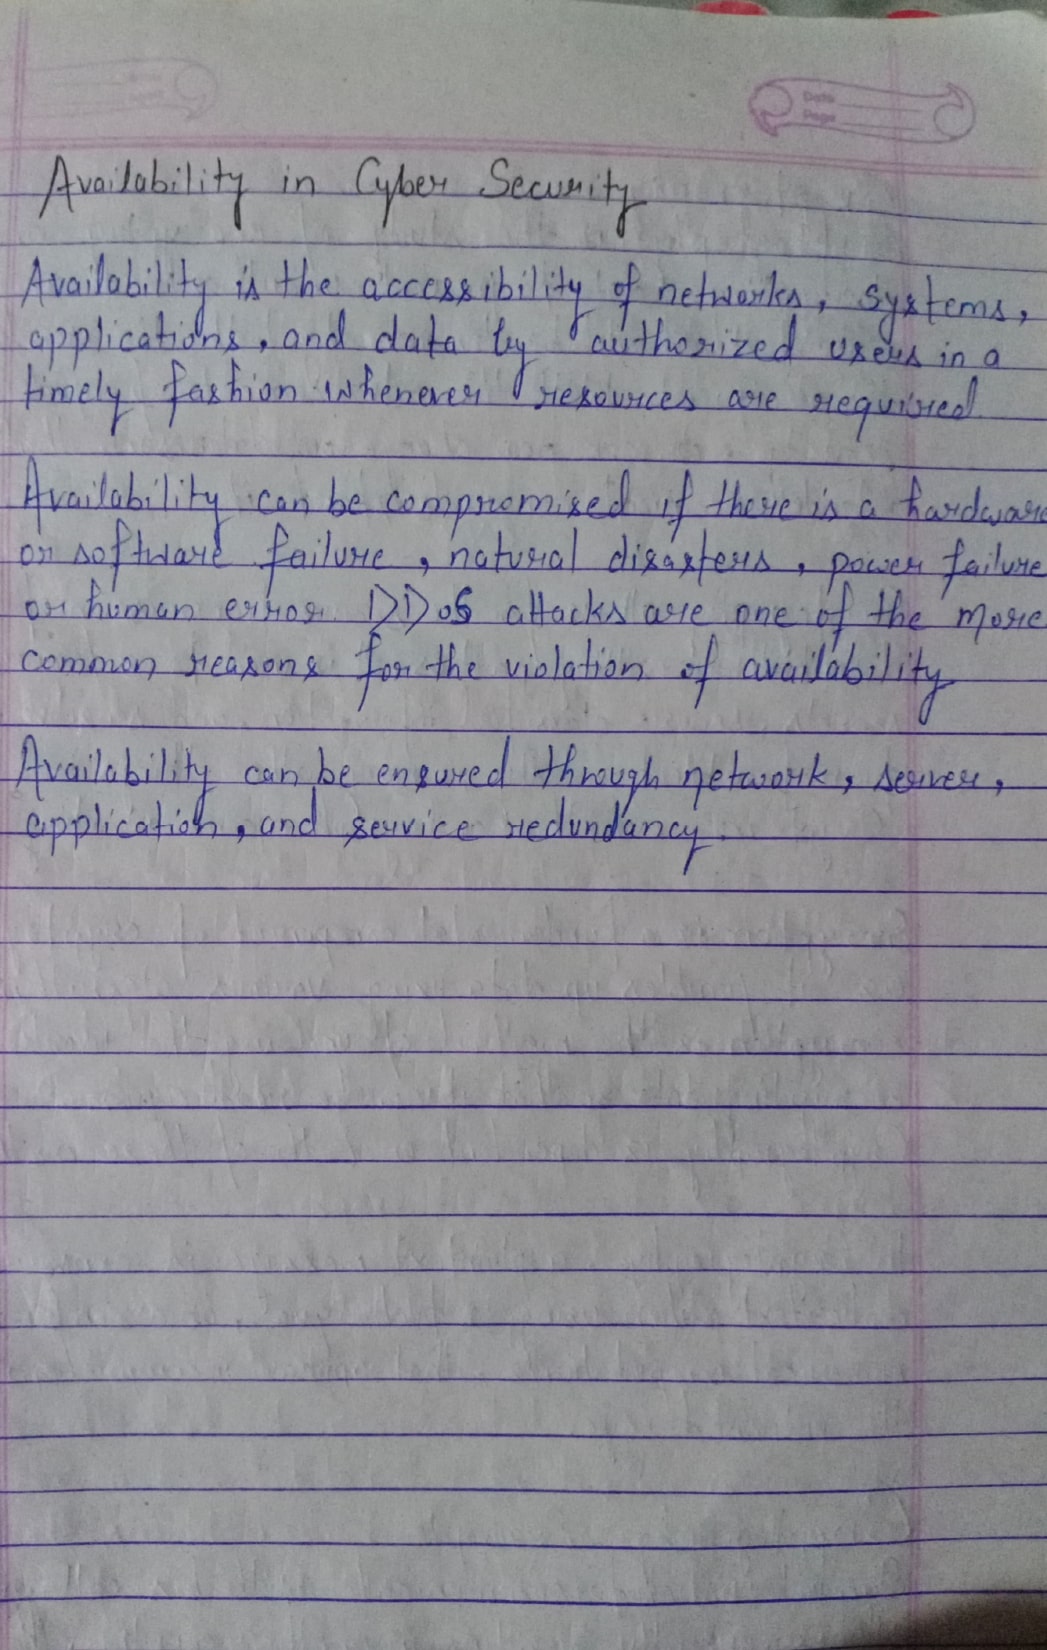 Date
Page
Availability in Cyber Security
Availability is the accessibility of networks, systems,
applications, and data by authorized users in a
timely fashion whenever resources are required
Availability can be compromised if there is a hardware
or software failure, natural disasters, power failure
or human error DDoS attacks are one of the more
common reasons for the violation of availability
Availability can be ensured through network, server,
application, and service redundancy.